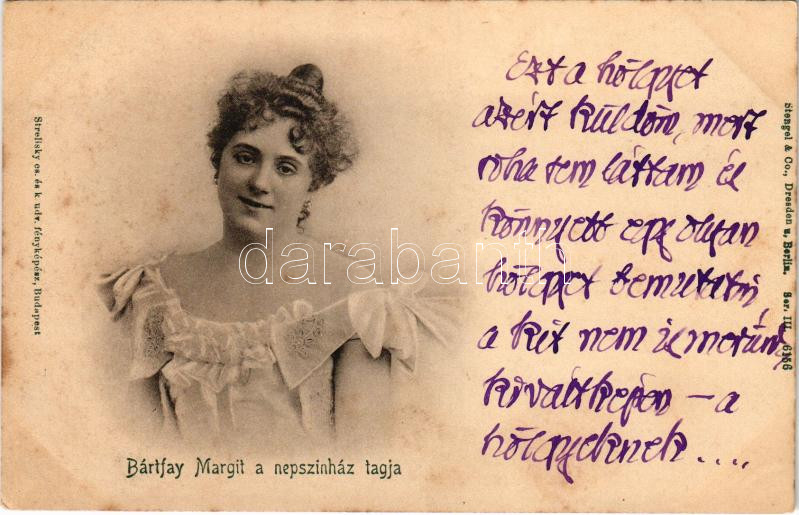 Strelisky cs. és k. udv. fényképész, Budapest
Bártfay Margit a nepszinház tagja
Ezt a hölgyet
azért küldöm, mert
soha sem láttam és
könnyebb egy olyan
hölgyet bemutatni
a kit nem ismerünk
kiváltképen – a
hölgyeknek....
Stengel & Co., Dresden u. Berlin. Ser. III. 6156
darabanth